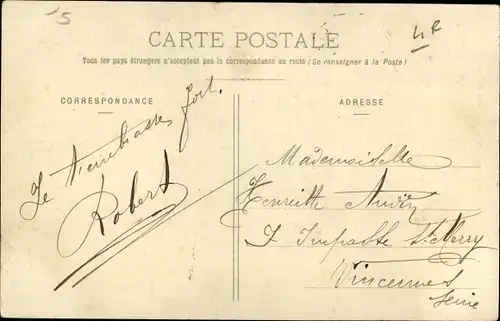 CARTE POSTALE
Tous les pays étrangers n'acceptent pas la correspondance au recto (Se renseigner à la Poste)
CORRESPONDANCE
ADRESSE
Je t'embrasse fort.
Robert
Mademoiselle
Henriette
Impasse St Merry
Vincennes
Seine